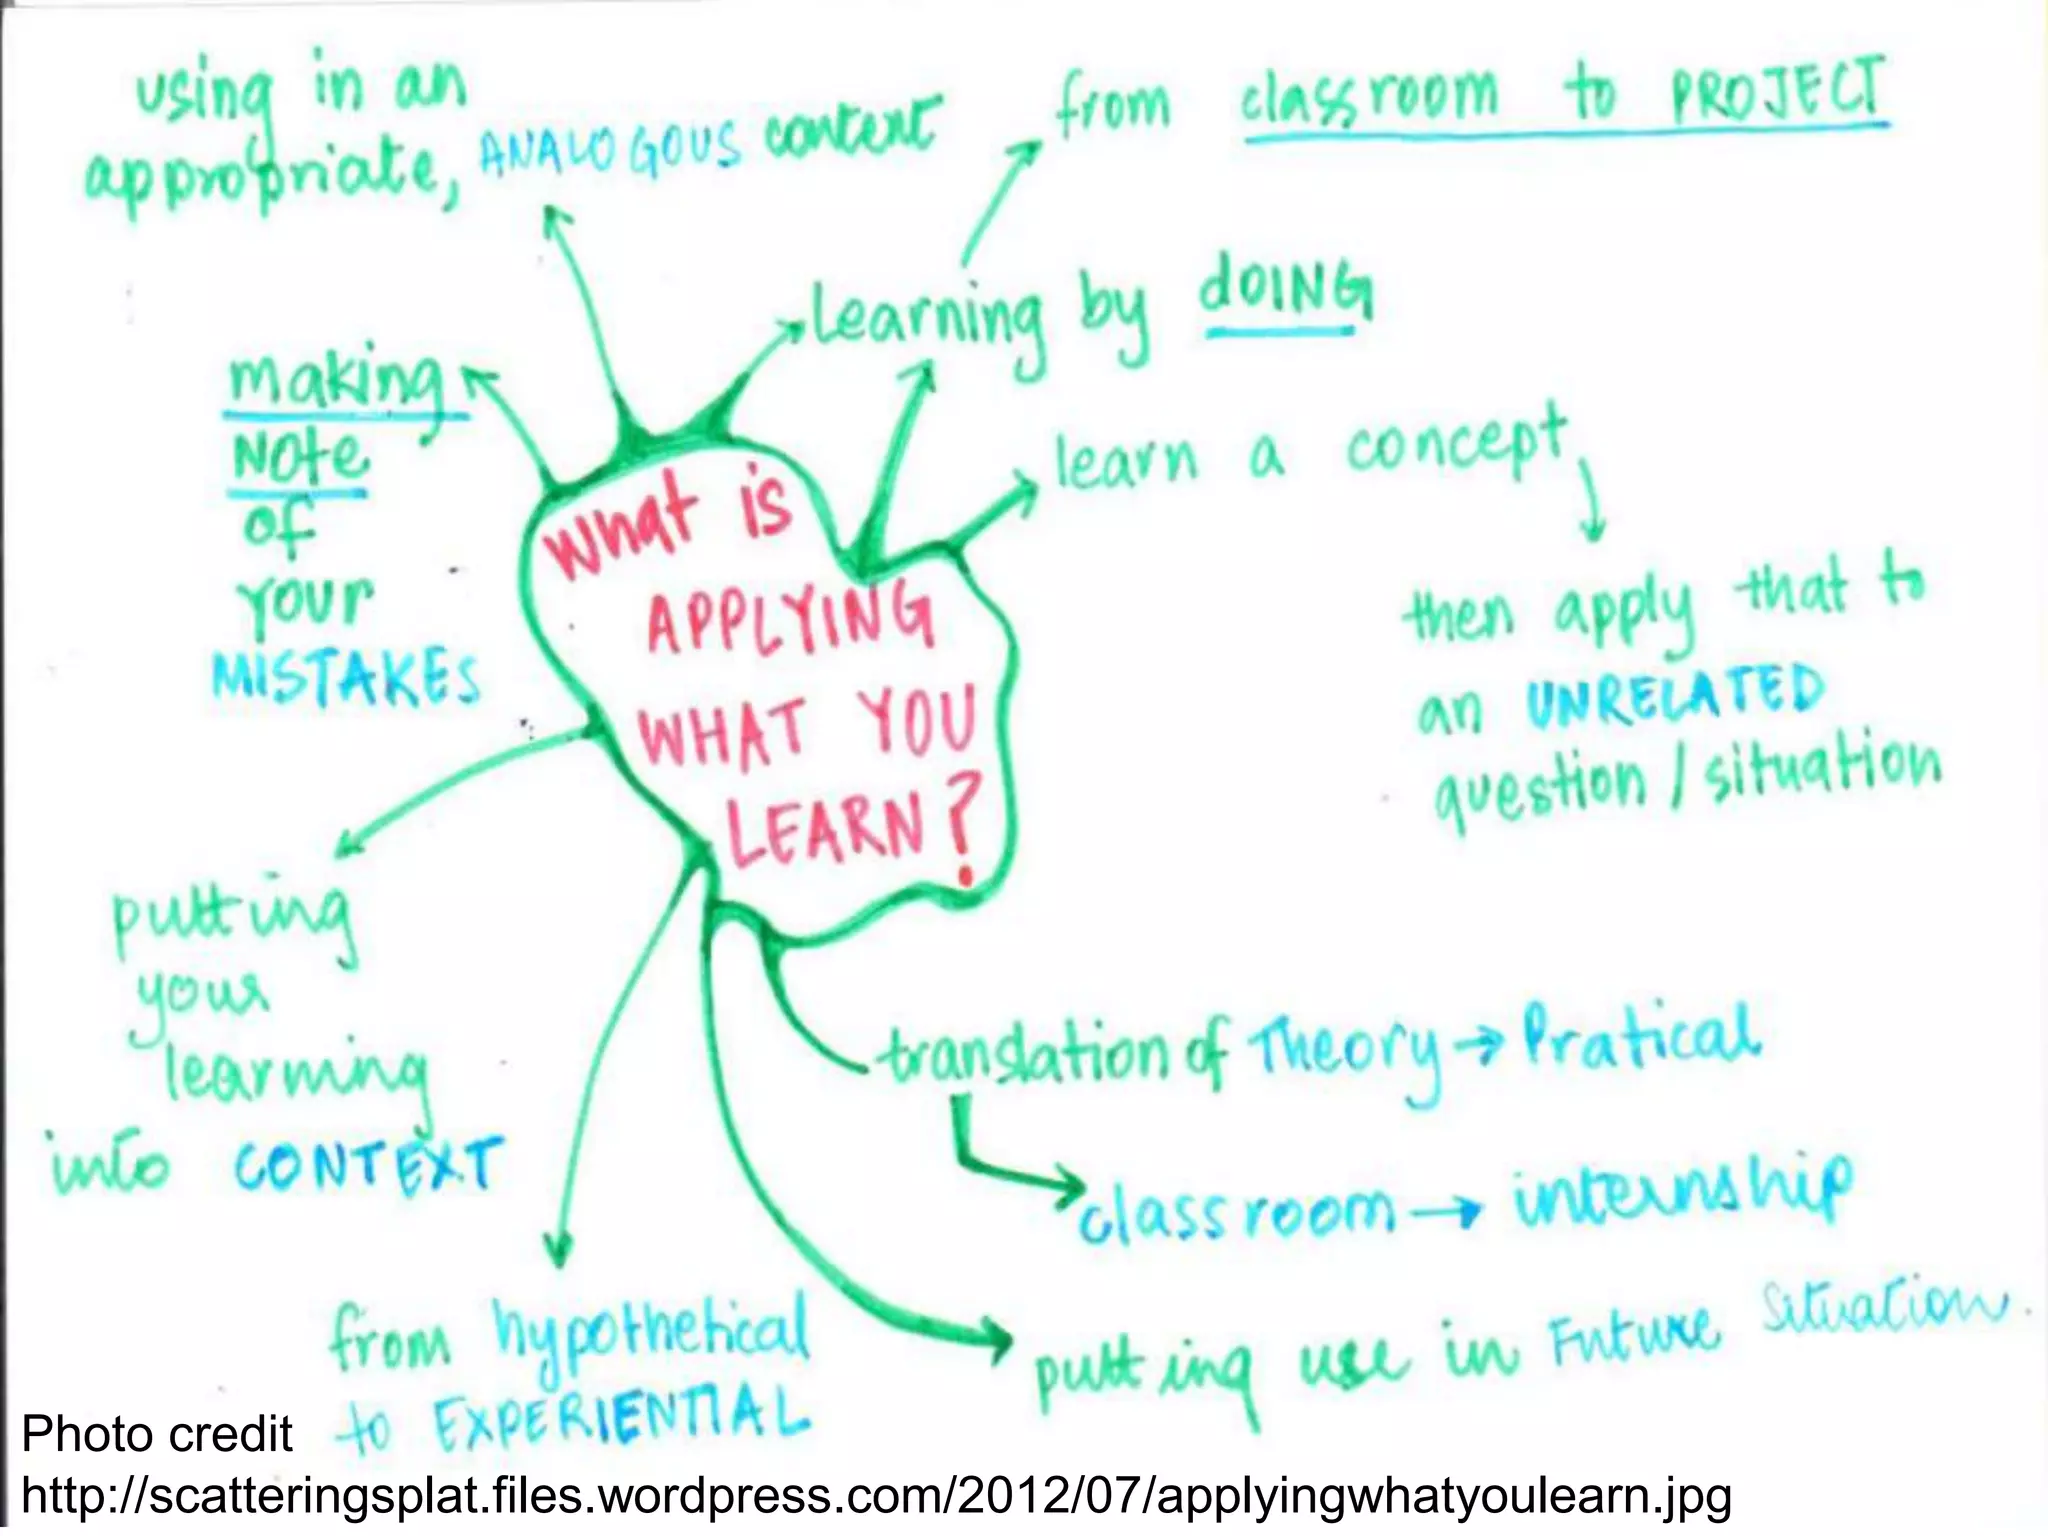 using in an
appropriate, ANALOGOUS context
from classroom to PROJECT
Learning by dOING
making
Note
of
your
MISTAKES
learn a concept
then apply that to
an UNRELATED
question / situation
What is
APPLYING
WHAT YOU
LEARN?
putting
your
learning
into CONTEXT
translation of Theory → Pratical
classroom → internship
from hypothetical
to EXPERIENTIAL
putting use in Future Situation.
Photo credit
http://scatteringsplat.files.wordpress.com/2012/07/applyingwhatyoulearn.jpg